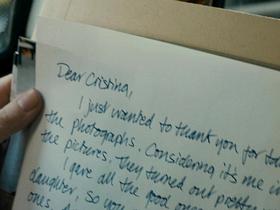 Dear Cristina,
I just wanted to thank you for
the photographs. Considering it's me
the pictures, they turned out pretty
I gave all the good ones
daughter, so you
ones.